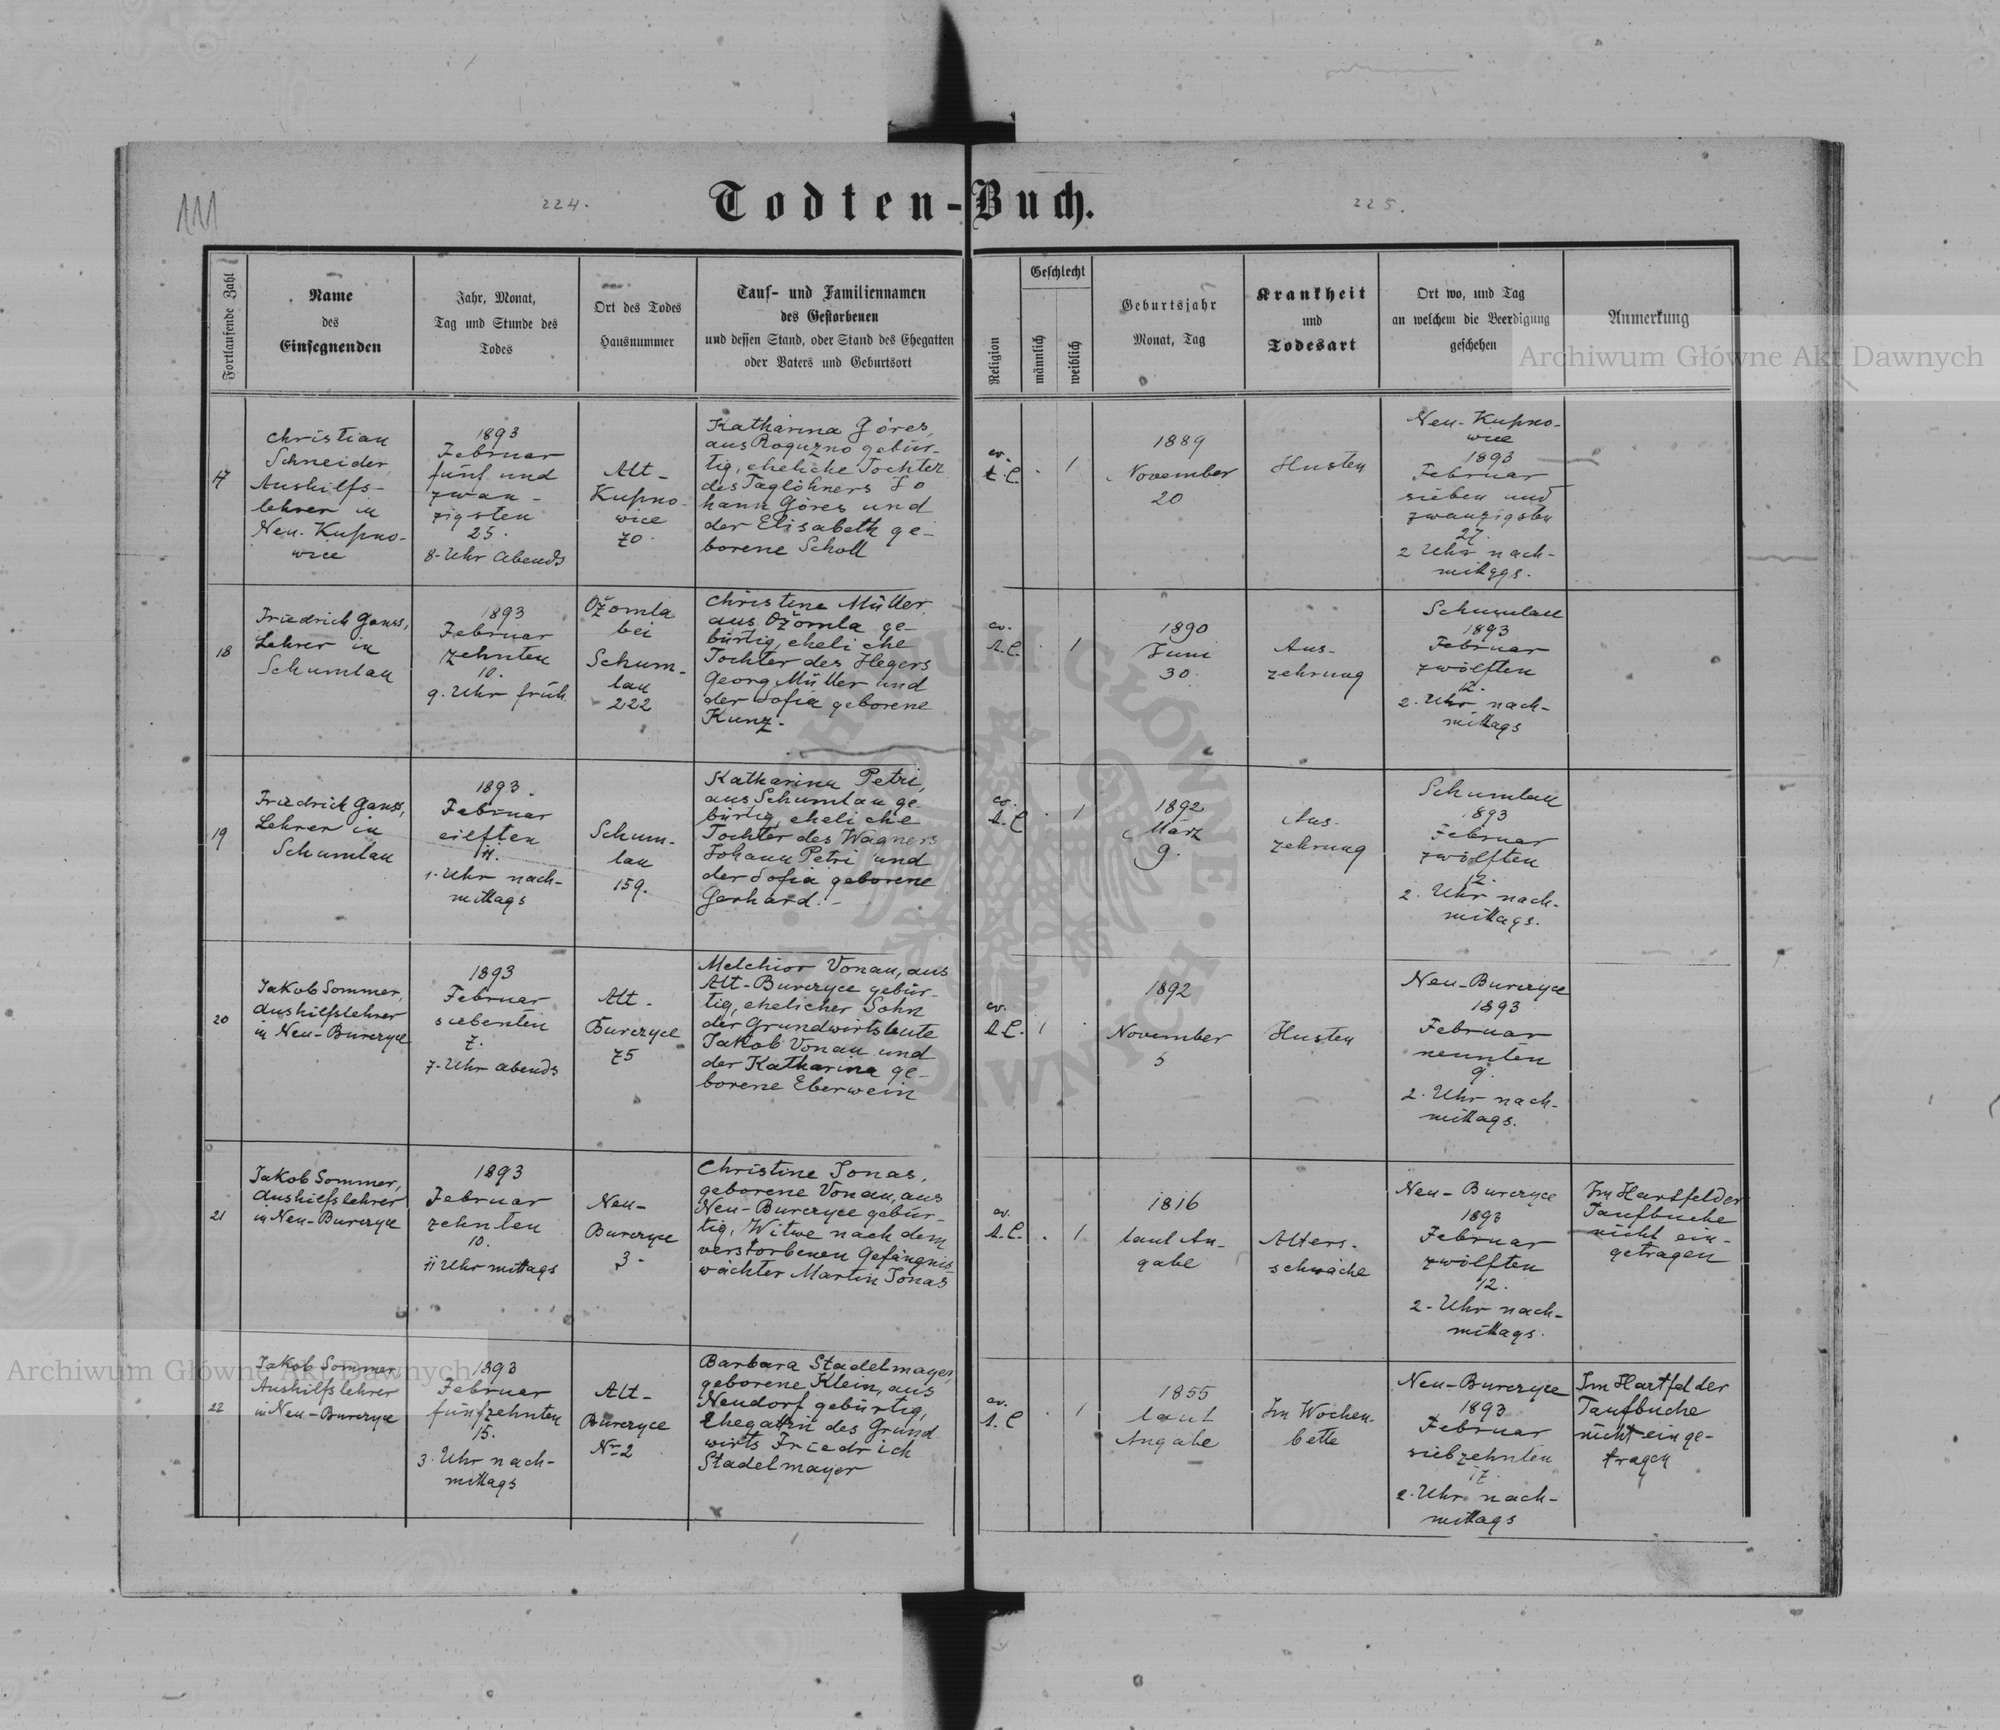 111
224.
Todten-Buch.
225.
Fortlaufende Zahl
Name
des
Einsegnenden
Jahr, Monat,
Tag und Stunde des
Todes
Ort des Todes
Hausnummer
Tauf- und Familiennamen
des Gestorbenen
und dessen Stand, oder Stand des Ehegatten
oder Vaters und Geburtsort
Religion
Geschlecht
männlich
weiblich
Geburtsjahr
Monat, Tag
Krankheit
und
Todesart
Ort wo, und Tag
an welchem die Beerdigung
geschehen
Anmerkung
Archiwum Główne Akt Dawnych
17
Christian
Schneider,
Aushilfs-
lehrer in
Neu-Kupno-
wice
1893
Februar
fünf und
zwan-
zigsten
25.
8-Uhr Abends
Alt-
Kupno-
wice
70.
Katharina Göres,
aus Roguzno gebür-
tig, eheliche Tochter
des Taglöhners Jo
hann Göres und
der Elisabeth ge-
borene Scholl
ev.
A.C.
. 1
1889
November
20
Husten
Neu-Kupno-
wice
1893
Februar
sieben und
zwanzigsten
27.
2 Uhr nach-
mittggs.
18
Friedrich Ganss,
Lehrer in
Schumlau
1893
Februar
zehnten
10.
9. Uhr früh.
Ožomla
bei
Schum-
lau
222
Christine Müller.
aus Ožomla ge-
bürtig, eheliche
Tochter des Hegers
Georg Müller und
der Sofia geborene
Kunz.-
ev.
A.C.
. 1
1890
Juni
30.
Aus-
zehrung
Schumlau
1893
Februar
zwölften
12.
2. Uhr nach-
mittags
19
Friedrich Ganss,
Lehrer in
Schumlau
1893.
Februar
eilften
11.
1. Uhr nach-
mittags
Schum-
lau
159.
Katharina Petri,
aus Schumlau ge
bürtig, eheliche
Tochter des Wagners
Johann Petri und
der Sofia geborene
Gerhard.-
ev.
A.C
. 1
1892
März
9.
Aus-
zehrung
Schumlau
1893
Februar
zwölften
12.
2. Uhr nach-
mittags.
20
Jakob Sommer,
Aushilfslehrer
in Neu-Burczyce
1893
Februar
siebenten
7.
7-Uhr abends
Alt-
Burczyce
75
Melchior Vonau, aus
Alt-Burczyce gebür-
tig, ehelicher Sohn
der Grundwirtsleute
Jakob Vonau und
der Katharina ge-
borene Eberwein
ev.
A.C.
1 .
1892
November
5
Husten
Neu-Burczyce
1893
Februar
neunten
9.
2. Uhr nach-
mittags.
21
Jakob Sommer,
Aushiefslehrer
in Neu-Burczyce
1893
Februar
zehnten
10.
11 Uhr mittags
Neu-
Burczyce
3-
Christine Jonas,
geborene Vonau, aus
Neu-Burczyce gebür-
tig, Witwe nach dem
verstorbenen Gefängnis
wächter Martin Jonas
ev.
A.C.
. 1
1816
laut An-
gabe
Alters-
schwäche
Neu-Burczyce
1893
Februar
zwölften
12.
2-Uhr nach-
mittags.
Im Hartfelder
Taufbuche
nicht ein-
getragen
Archiwum Główne Akt Dawnych
22
Jakob Sommer
Aushilfslehrer
in Neu-Burczyce
1893
Februar
fünfzehnten
15.
3. Uhr nach-
mittags
Alt-
Burczyce
Nr 2
Barbara Stadelmayer,
geborene Klein, aus
Neudorf gebürtig,
Ehegattin des Grund
wirts Friedrich
Stadelmayer
ev.
A.C
. 1
1855
laut
Angabe
Im Wochen-
bette
Neu-Burczyce
1893
Februar
siebzehnten
17.
2. Uhr nach-
mittags
Im Hartfelder
Taufbuche
nicht einge-
tragen
ARCHIWUM GŁÓWNE AKT DAWNYCH